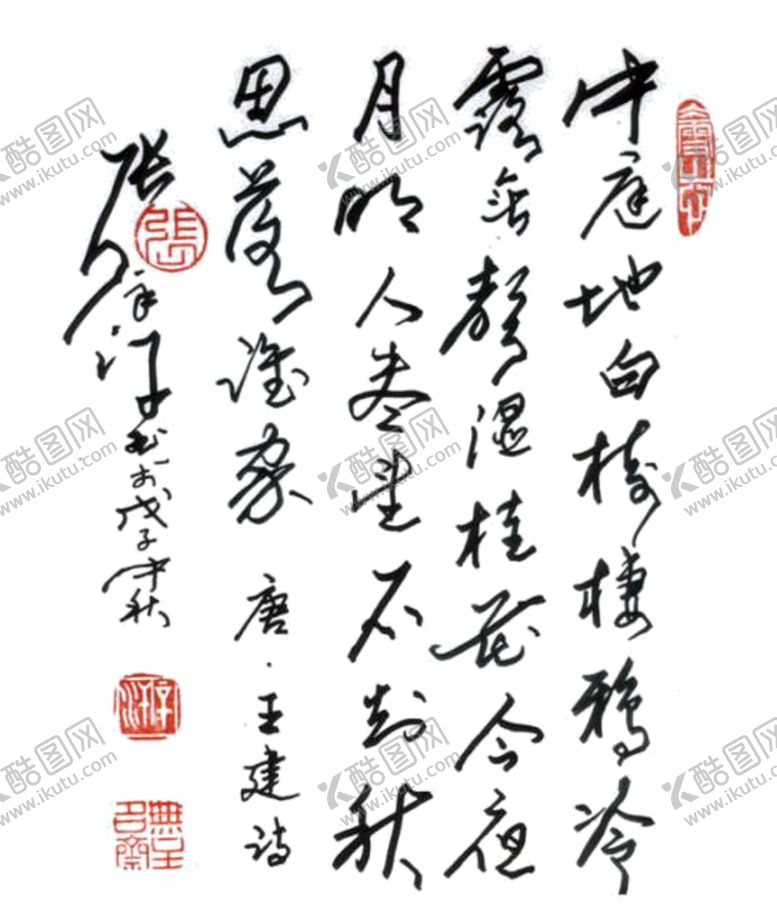 中庭地白树棲鴉冷
露無聲湿桂花今夜
月明人盡望不知秋
思落誰家 唐·王建诗
张
书于戊子中秋
張
酷图网
www.ikutu.com